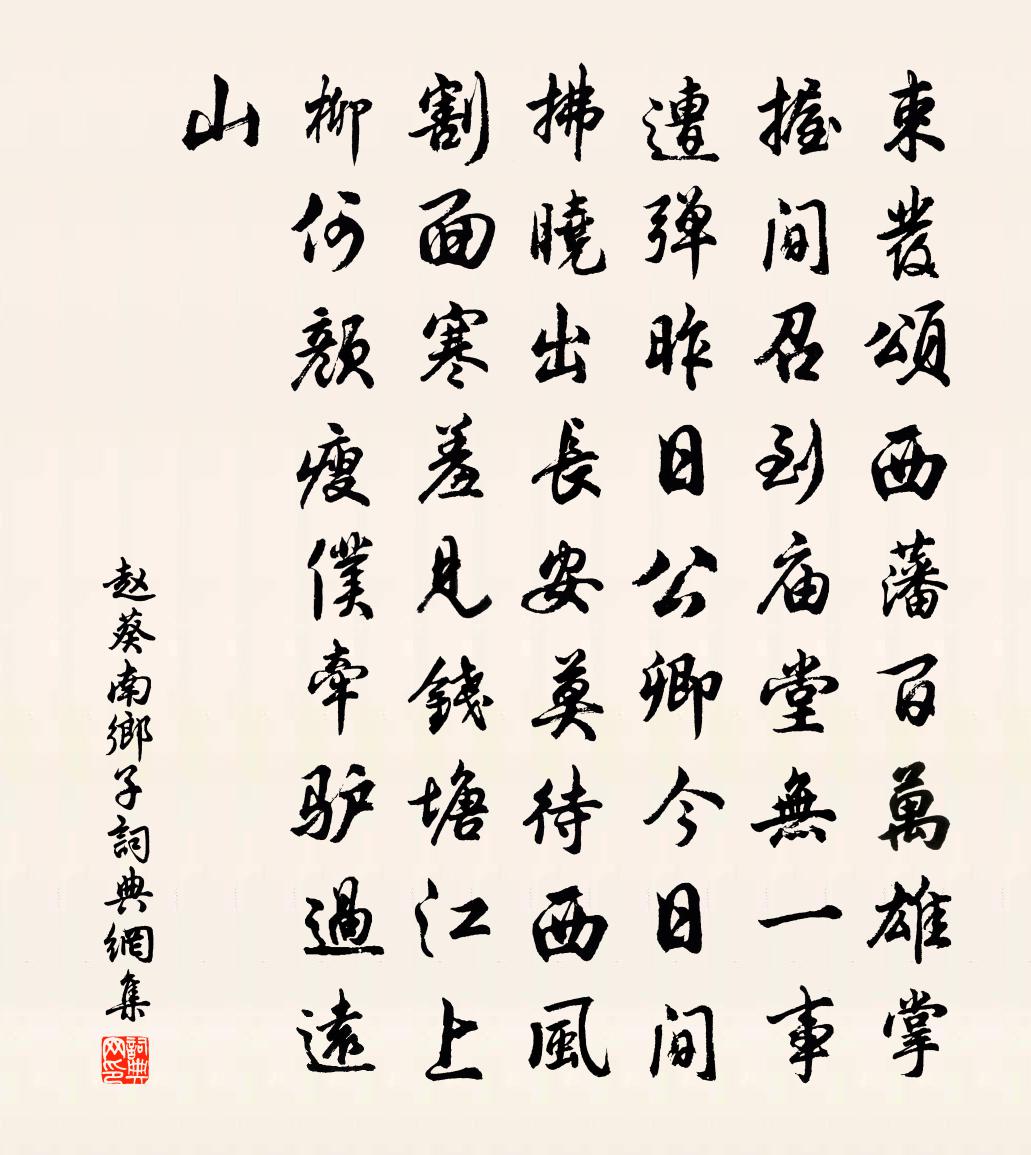 束發頌西藩百萬雄掌
握间召到庙堂無一事
遭弹昨日公卿今日间
拂曉出長安莫待西風
割面寒羞見錢塘江上
柳何顏瘦僕牵驴過遠
山
赵葵南鄉子詞典網集
詞典网印